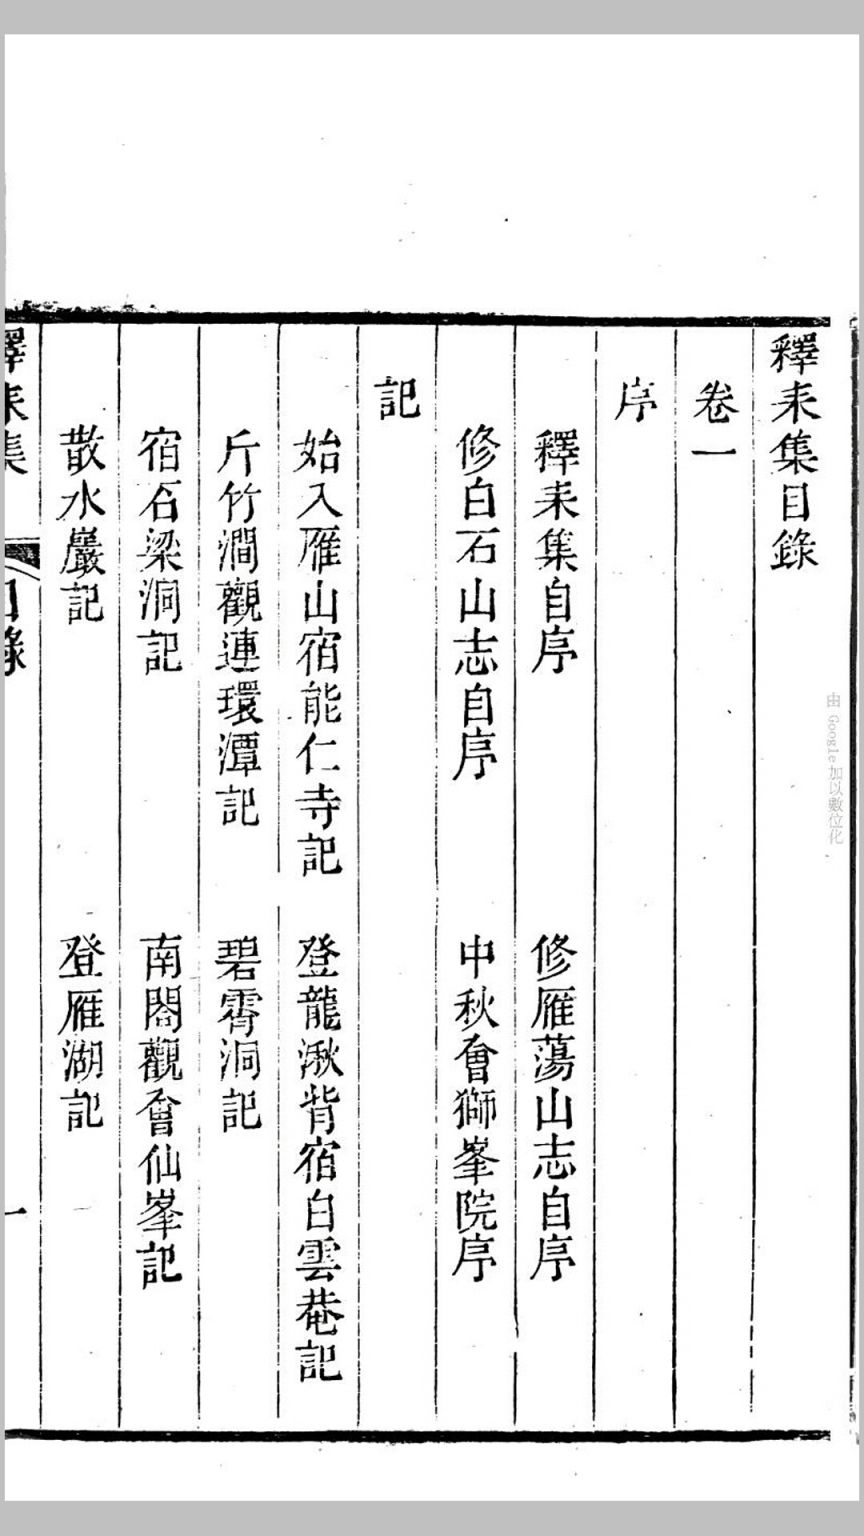 釋耒集目錄
卷一
序
釋耒集自序
修雁蕩山志自序
修白石山志自序
中秋會獅峯院序
記
始入雁山宿能仁寺記
登龍湫背宿白雲菴記
斤竹澗觀連環潭記
碧霄洞記
宿石梁洞記
南閤觀會仙峯記
散水巖記
登雁湖記
釋耒集
目錄
一
由 Google 加以數位化